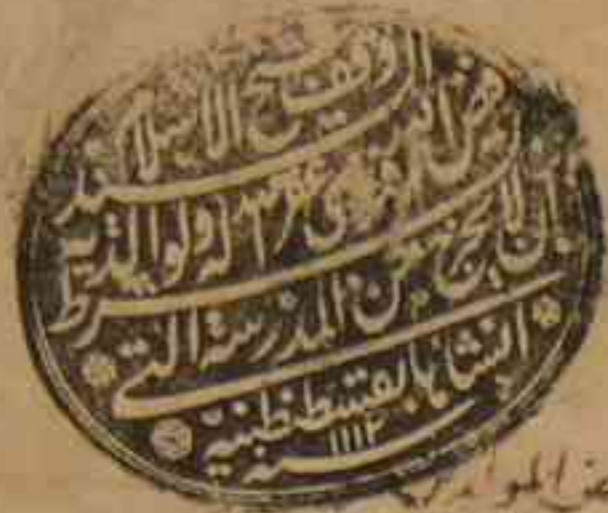 وقف شيخ الاسلام
السيد فيض الله افندى
غفر الله له ولوالديه
بشرط ان لا يخرج عن المدرسة التى
انشاها بقسطنطنية
سنه ١١١٢